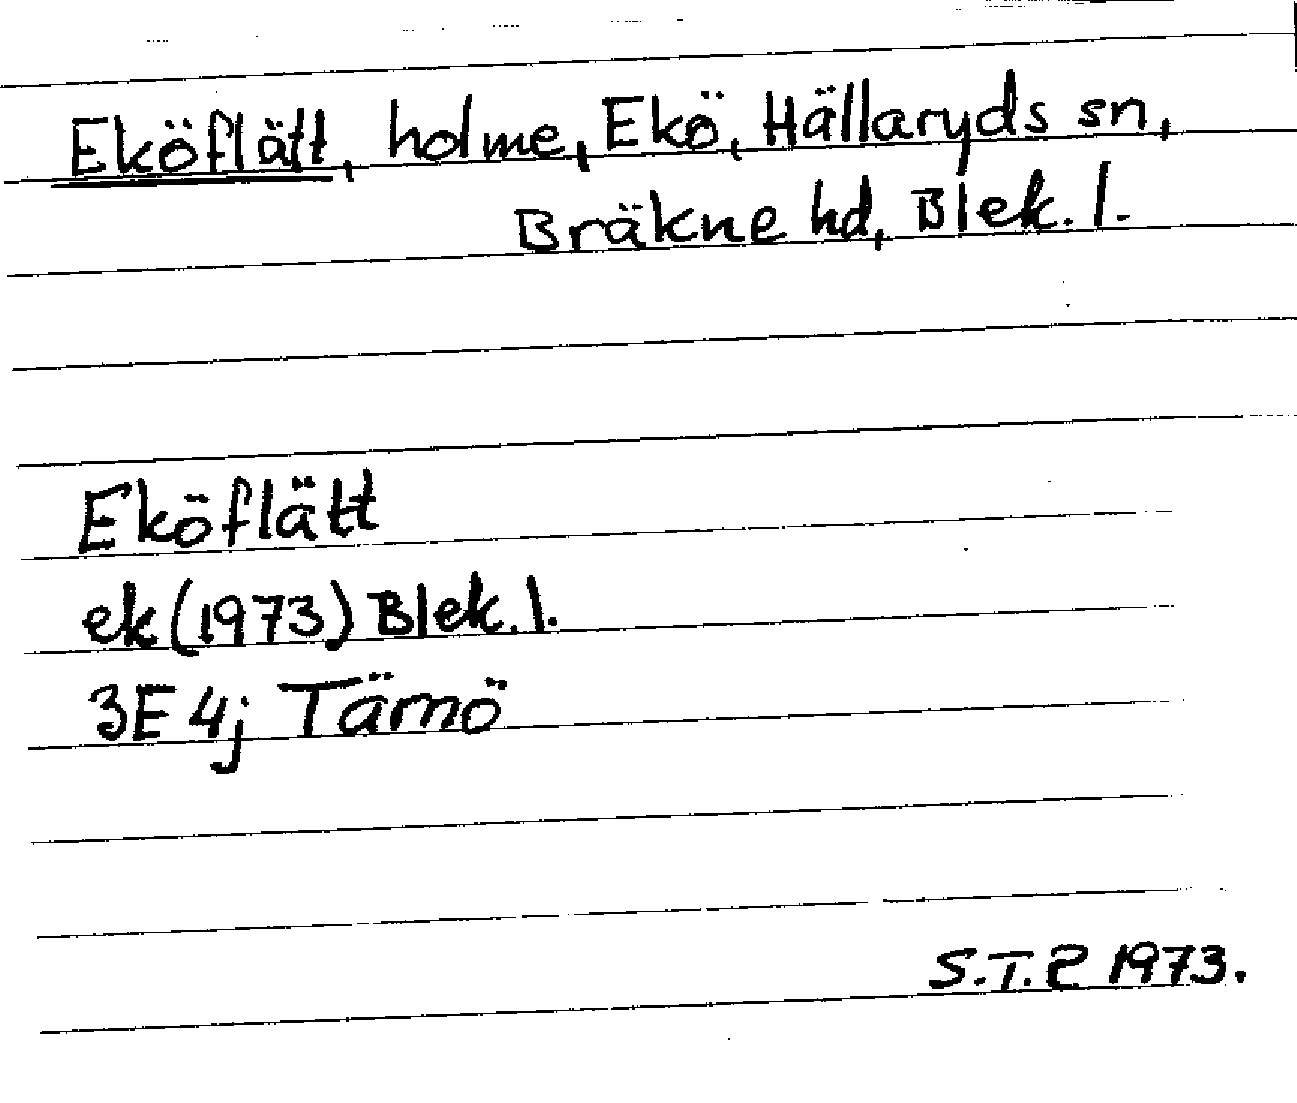 Eköflätt, holme, Ekö, Hällaryds sn,
Bräkne hd, Blek. l.
Eköflätt
ek (1973) Blek. l.
3E 4j Tärnö
S.T. 1973.